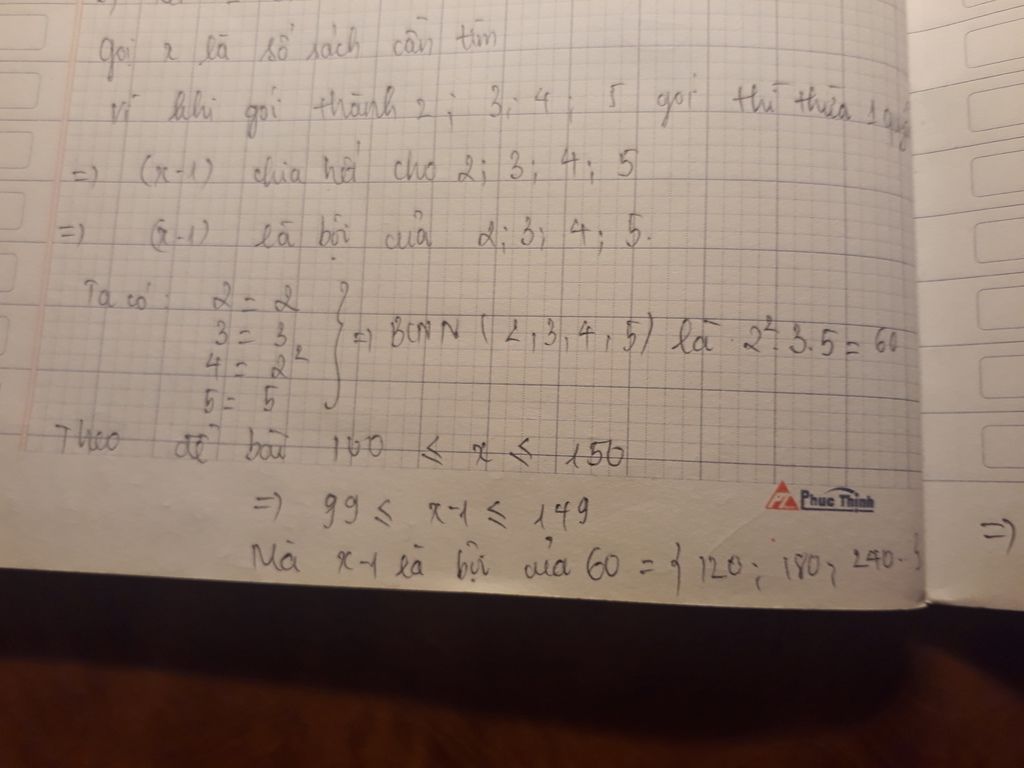 gọi x là số sách cần tìm
vì khi gói thành 2; 3; 4; 5 gói thì thừa 1
=> (x-1) chia hết cho 2; 3; 4; 5
=> (x-1) là bội của 2; 3; 4; 5.
Ta có: 2 = 2
3 = 3
4 = 2²
5 = 5
} => BCNN (2, 3, 4, 5) là 2². 3. 5 = 60
Theo đề bài 100 ≤ x ≤ 150
=> 99 ≤ x-1 ≤ 149
Phuc Thinh
=>
Mà x-1 là bội của 60 = { 120; 180; 240..}